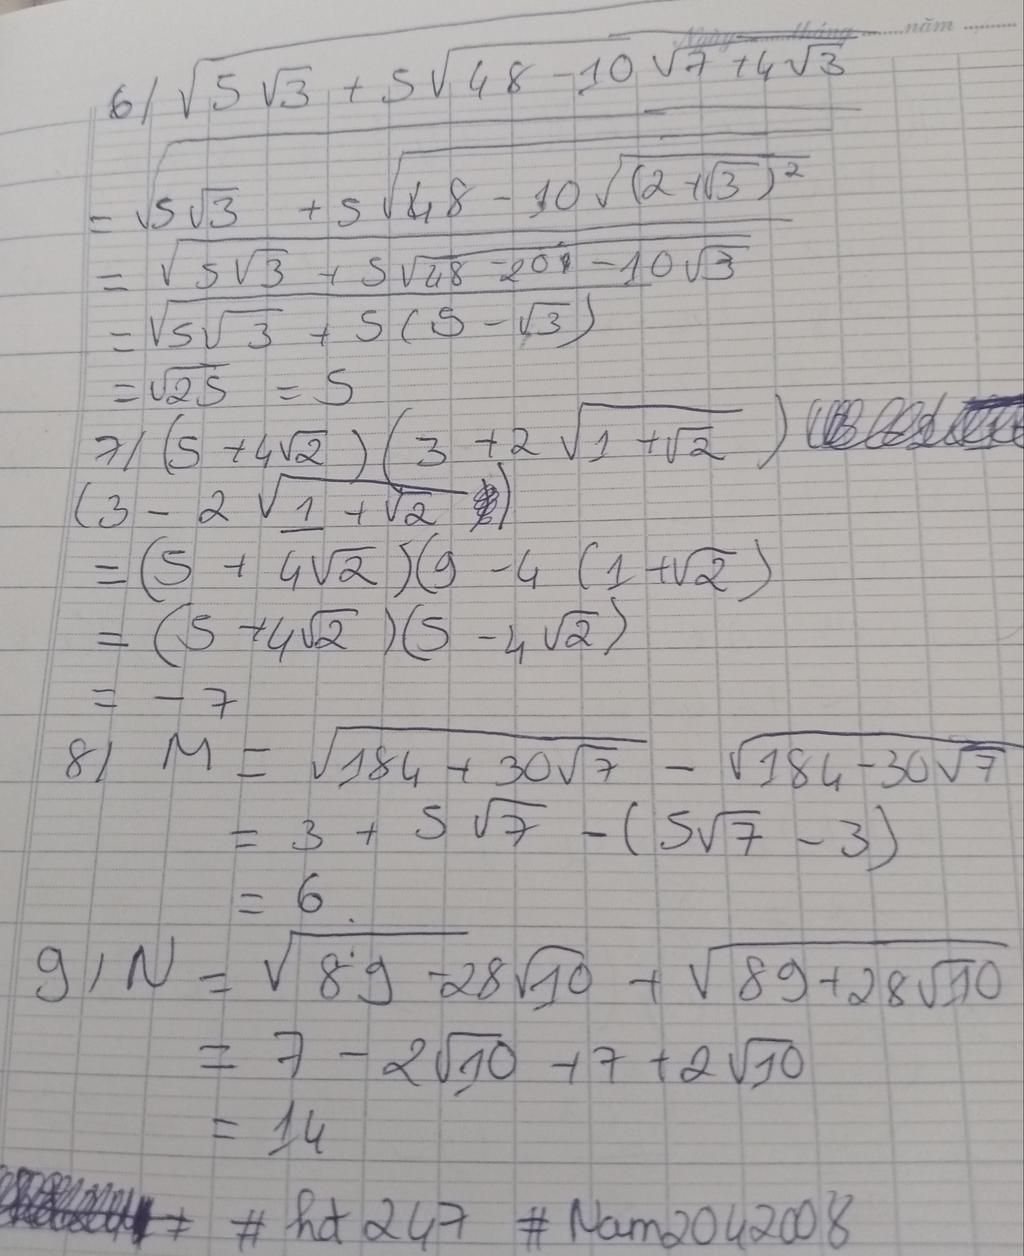 Ngày tháng năm
6/ √(5√3 + 5√(48 - 10√(7 + 4√3)))
= √(5√3 + 5√(48 - 10√((2 + √3)²)))
= √(5√3 + 5√(48 - 20 - 10√3))
= √(5√3 + 5(5 - √3))
= √25 = 5
7/ (5 + 4√2)(3 + 2√(1 + √2))
(3 - 2√(1 + √2))
= (5 + 4√2)(9 - 4(1 + √2)
= (5 + 4√2)(5 - 4√2)
= - 7
8/ M = √(184 + 30√7) - √(184 - 30√7)
= 3 + 5√7 - (5√7 - 3)
= 6.
9/ N = √(89 - 28√10) + √(89 + 28√10)
= 7 - 2√10 + 7 + 2√10
= 14
# hdt 247 # Nam2042008